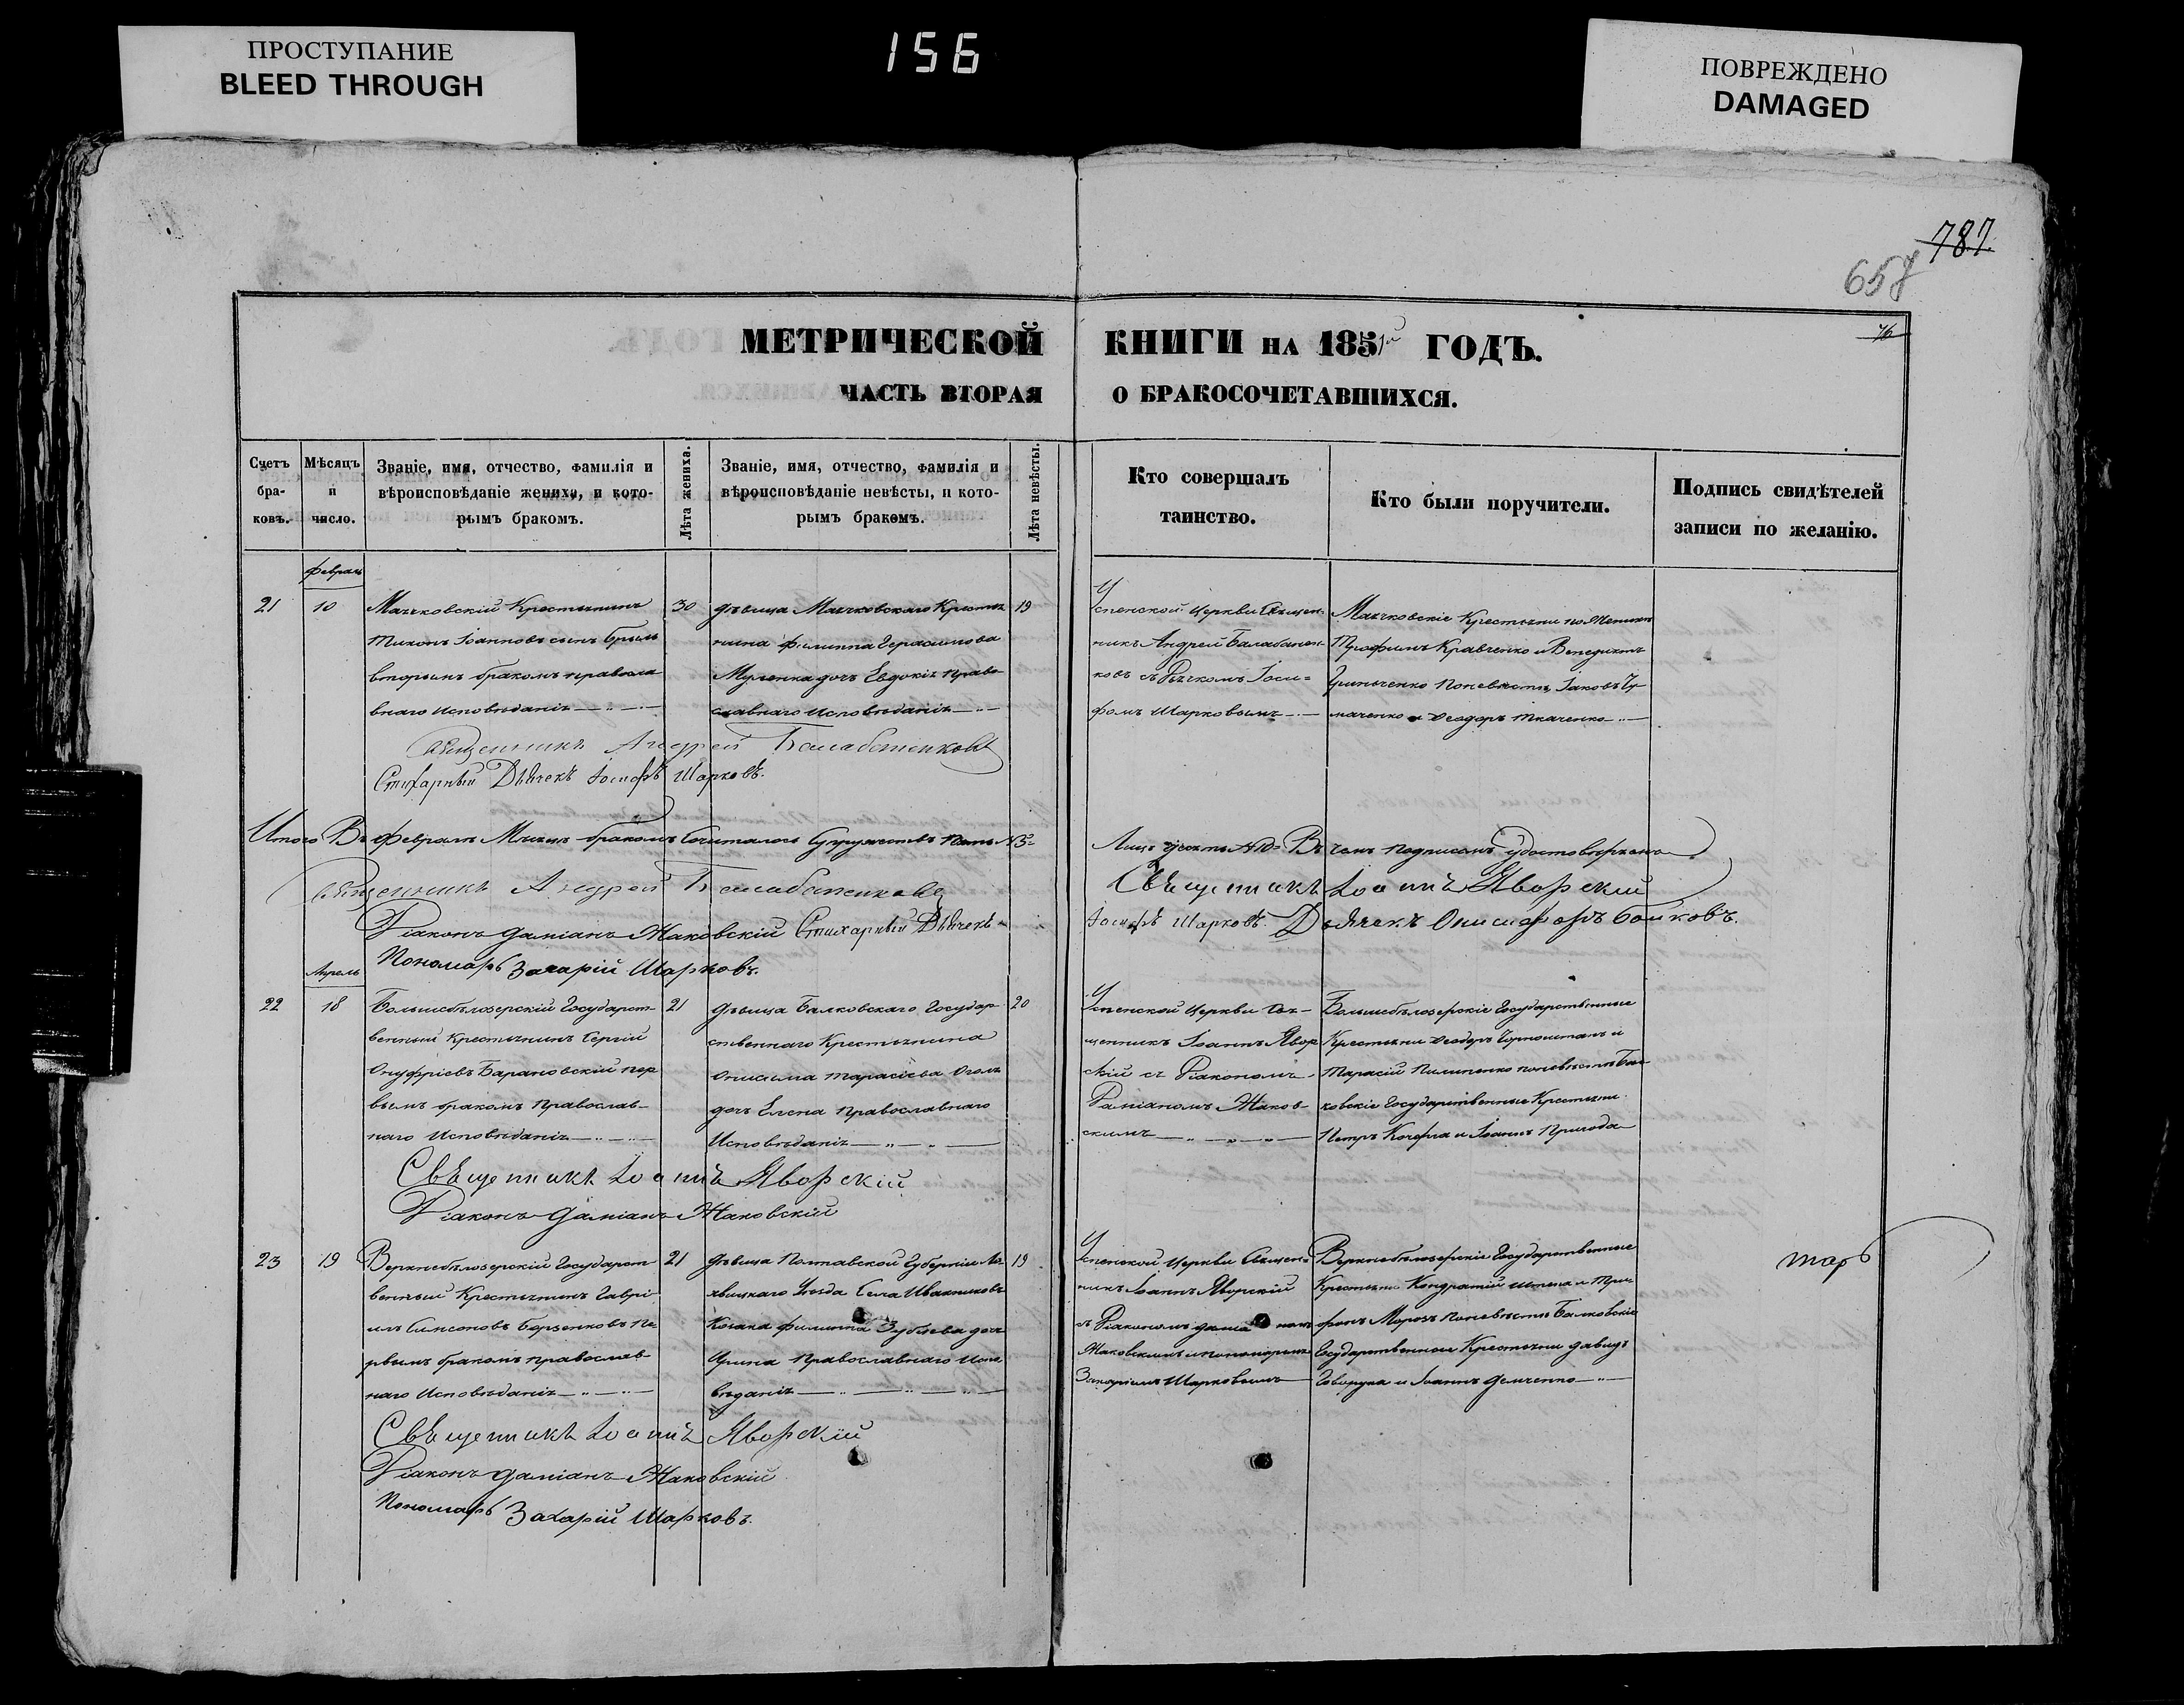 ПРОСТУПАНИЕ
BLEED THROUGH
156
ПОВРЕЖДЕНО
DAMAGED
787.
657
76
МЕТРИЧЕСКОЙ КНИГИ НА 1851й ГОДЪ.
ЧАСТЬ ВТОРАЯ О БРАКОСОЧЕТАВШИХСЯ.
Счетъ
бра-
ковъ.
Мѣсяцъ
и
число.
Званіе, имя, отчество, фамилія и
вѣроисповѣданіе жениха, и кото-
рымъ бракомъ.
Лѣта жениха.
Званіе, имя, отчество, фамилія и
вѣроисповѣданіе невѣсты, и кото-
рымъ бракомъ.
Лѣта невѣсты.
Кто совершалъ
таинство.
Кто были поручители.
Подпись свидѣтелей
записи по желанію.
Февраль
21
10
Маячковскій Крестьянинъ
Тихонъ Іоанновъ сынъ Брыль
вторымъ бракомъ правосла
внаго Исповѣданія
30
дѣвица Маячковскаго Крестья
нина Филиппа Герасимова
дочь Евдокія право-
славнаго Исповѣданія
19
Успенской Церкви Священ-
никъ Андрей Балабанен-
ковъ съ Дьячкомъ Іоси-
фомъ Шарковымъ
Маячковскіе Крестьяне по Женихѣ
Трофимъ Кравченко и Венедиктъ
Поневѣстѣ Іаковъ
и Ѳеодоръ Ткаченко
Священникъ Андрей Балабаненковъ
Стихарный Дьячекъ Іосифъ Шарковъ.
Итого Въ Февралѣ Мѣсяцѣ бракомъ Сочиталось Супружествъ Пять № 5
Лицъ десять № 10 Въ чемъ подписомъ удостовѣряемъ
Священникъ Андрей Балабаненковъ
Священникъ Іоаннъ Яворскій
Діаконъ Даміанъ Жаковскій Стихарный Дьячекъ
Іосифъ Шарковъ. Дьячекъ Онисифоръ Бойковъ.
Пономарь Захарій Шарковъ.
Апрель
22
18
Большебѣлозерскій Государст-
венный Крестьянинъ Сергій
Онуфріевъ Барановскій пер
вымъ бракомъ Православ-
наго Исповѣданія
21
дѣвица Балковскаго Государ
ственнаго Крестьянина
Онисима Тарасіева
дочь Елена православнаго
Исповѣданія
20
Успенской Церкви Свя-
щенникъ Іоаннъ Явор
скій съ Діакономъ
Даміаномъ Жаков-
скимъ
Большебѣлозерскіе Государственные
Крестьяне Ѳеодоръ и
Тарасій Пилипенко поневѣстѣ Бал
ковскіе Государственные Крестьяне
Петръ Кочерга и Іоаннъ Пригода
Священникъ Іоаннъ Яворскій
Діаконъ Даміанъ Жаковскій
23
19
Верхнебѣлозерскій Государст
венный Крестьянинъ Гаврі
илъ Симеоновъ Борзенковъ Пе
рвымъ бракомъ православ-
наго Исповѣданія
21
дѣвица Полтавской Губерніи Ло
хвицкаго Уѣзда Села Ивахниковъ
Козака Филиппа Зубкова дочь
Ирина Православнаго Испо
вѣданія
19
Успенской Церкви Священ-
никъ Іоаннъ Яворскій
съ Діакономъ Даміаномъ
Жаковскимъ и пономаремъ
Захаріемъ Шарковымъ
Верхнебѣлозерскіе Государственные
Крестьяне Кондратій Шпека и Три
фонъ Морозъ Поневѣстѣ Балковскіе
Государственные Крестьяне Давидъ
Говоруха и Іоаннъ Демченко
Священникъ Іоаннъ Яворскій
Діаконъ Даміанъ Жаковскій
Пономарь Захарій Шарковъ.